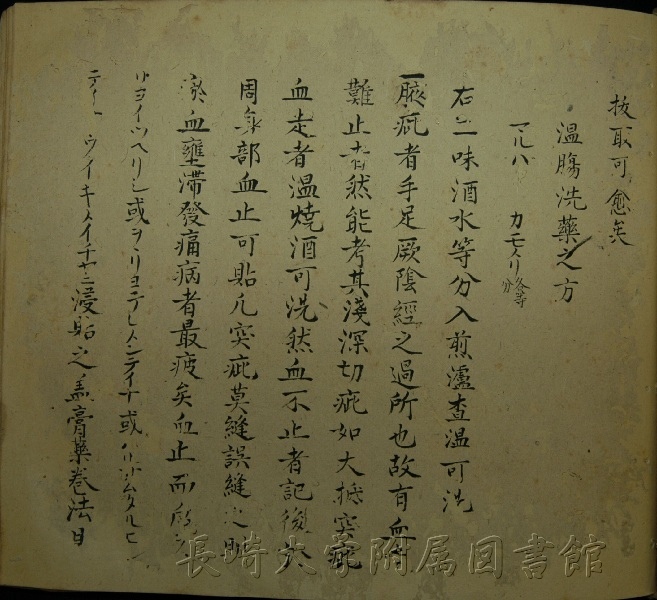 抜取可愈矣
温腸洗藥之方
マルハ カモメリ 各等分
右二味酒水等分入煎濾査温可洗
一腋疵者手足厥陰經之過所也故有血
難止者然能考其淺深切疵如大抵突疵
血走者温燒酒可洗然血不止者記後於
周身部血止可貼凡突疵莫縫誤縫之則
瘀血壅滯發痛病者最疲矣血止而后
リヨイツヘリシ或ヲヽリヨテレメンテイナ或
テイ ウイキメイチヤニ浸貼之盖膏藥卷法日
長崎大学附属図書館